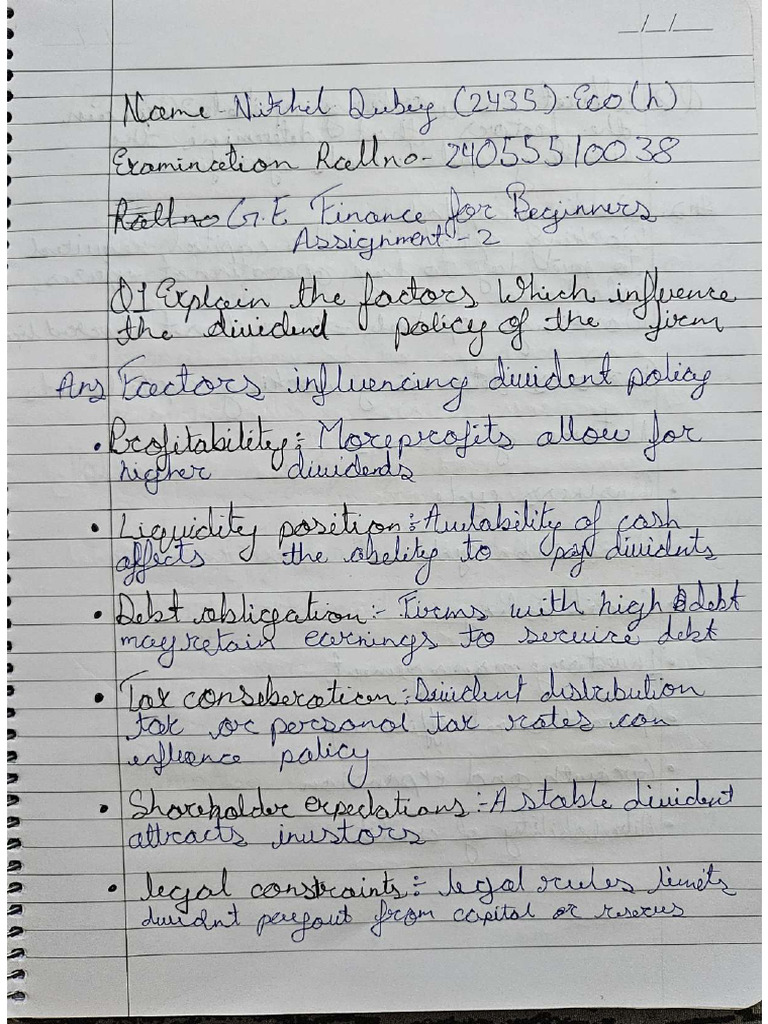 __/__/__
Name - Nikhil Dubey (2435) Eco(h)
Examination Rollno - 24055510038
Rollno G.E Finance for Beginners
Assignment - 2
Q1 Explain the factors Which influence
the dividend policy of the firm
Ans Factors influencing divident policy
• Profitability :- More profits allow for
higher dividends
• Liquidity position :- Availability of cash
affects the ability to pay dividents
• Debt obligation :- Firms with high debt
may retain earnings to service debt
• Tax consideration :- Divident distribution
tax or personal tax rates can
influence policy
• Shareholder expectations :- A stable divident
attracts invstors
• legal constraints :- legal rules limits
dividnt payout from capital or reserves